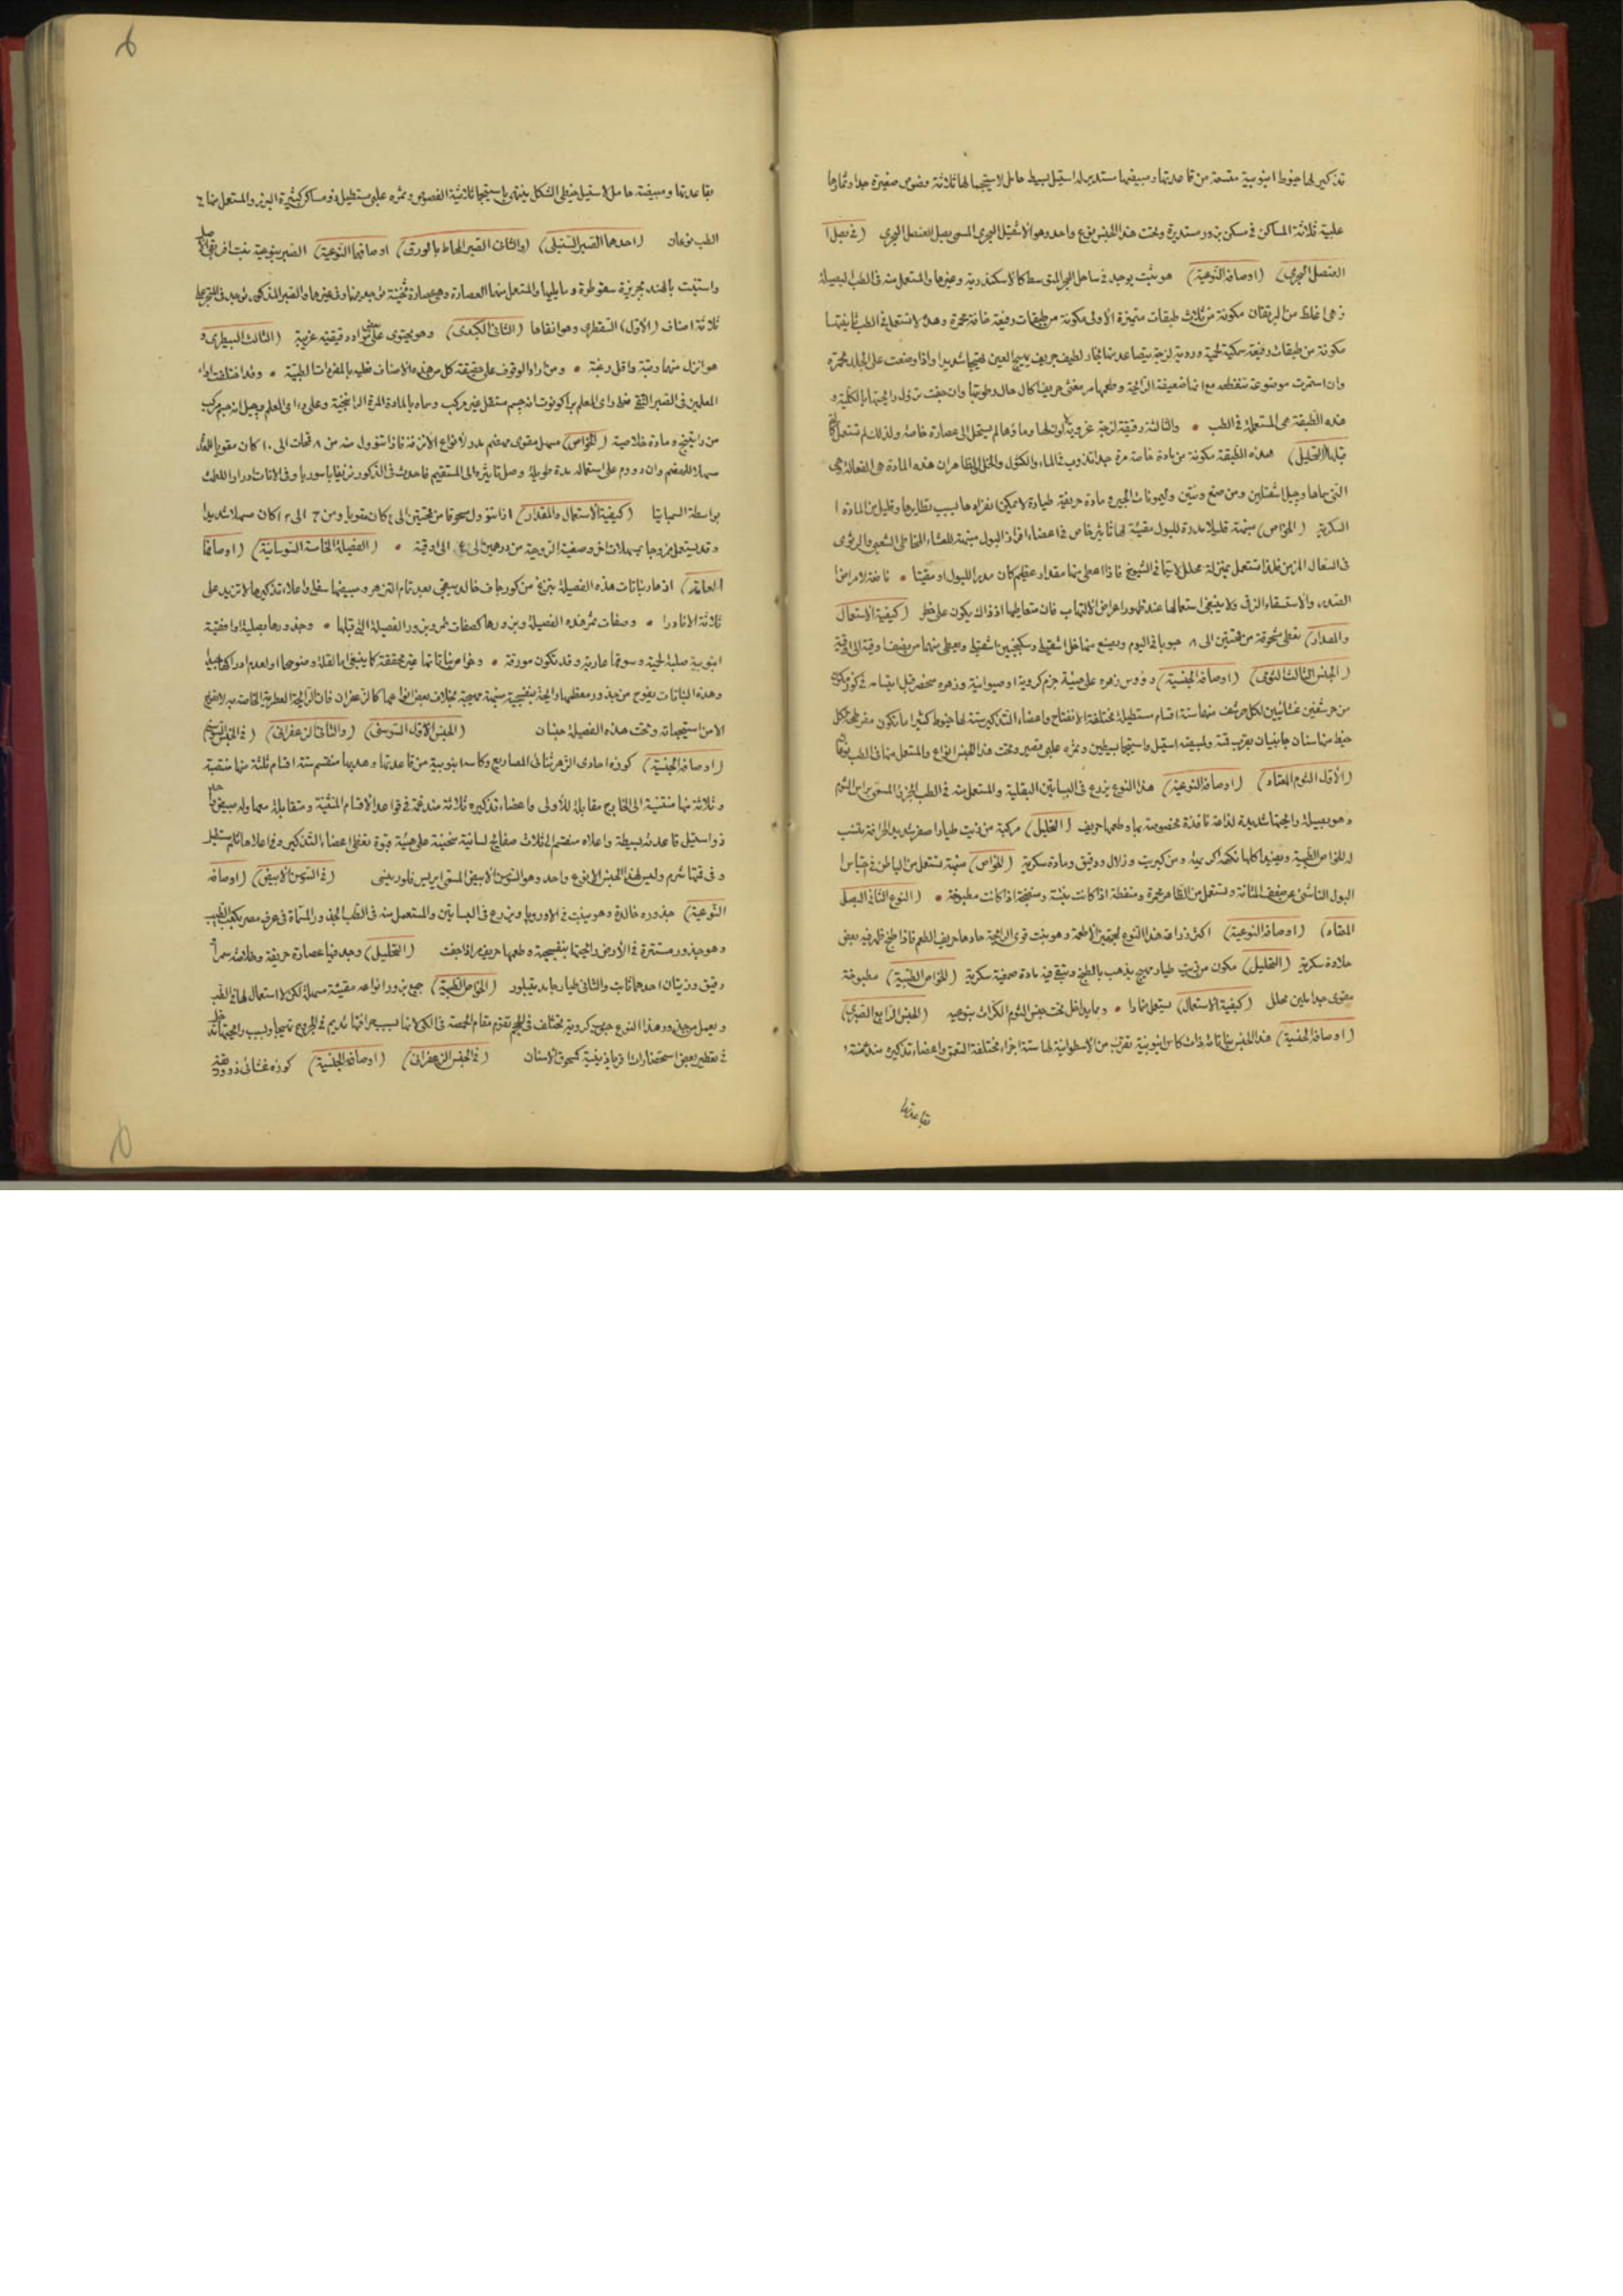 تذكير لها خيوط انبوبية متسعة من قاعدتها ومبيضها مستدير له استيل بسيط حامل لاستيجما لها ثلاثة فصوص صغيرة جدا وثمارها
علبية ثلاثة المساكن في مسكن بزور مستديرة وتحت هذا الجنس نوع واحد وهو الاشقيل البحري المسمى بصل العنصل البحري (في بصل
العنصل البحري) (اوصافه النوعية) هو نبت يوجد في ساحل البحر المتوسط كالاسكندرية وغيرها والمستعمل منه في الطب البصيلة
وهي اغلظ من البرتقان مكونة من ثلاث طبقات متميزة الاولى مكونة من طبقات رفيعة جافة محمرة وهذه لا تستعمل في الطب ثانيتها
مكونة من طبقات رفيعة سميكة لحمية وردية لزجة يتصاعد منها بخار لطيف حريف يهيج العين تهييجا شديدا واذا وضعت على الجلد محمرة
وان استمرت موضوعة تنفطه مع انها ضعيفة الرائحة وطعمها مر مغثي حريف كال حال رطوبتها وان جففت تزول رائحتها بالكلية و
هذه الطبقة هي المستعملة في الطب • والثالثة رقيقة لزجة غروية لا لون لها وماؤها لم يستحل الى عصارة خاصة ولذلك لم تستعمل
(التحليل) هذه الطبقة مكونة من مادة خاصة مرة جدا تذوب في الماء والكئول والخل الظاهر ان هذه المادة هي الفعالة وهي
التي سماها وجيل اشقلين ومن صمغ وتنين وليمونات الجير ومادة حريفة طيارة لا يمكن انفرادها بسبب تطايرها وقليل من المادة
السكرية (الخواص) منبهة قليلا مدرة للبول مقيئة لها تاثير خاص في اعضاء افراز البول منبهة للغشاء المخاطي الشعبي والرئوي
في السعال المزمن فلذا تستعمل بمنزلة محلل لا سيما في الشيوخ فاذا اعطي منها مقدار عظيم كان مدرا للبول او مقيئا • نافعة لامراض
الصدر والاستسقاء الزقي ولا ينبغي استعمالها عند ظهور اعراض الالتهاب فان متعاطيها اذ ذاك يكون على خطر (كيفية الاستعمال
والمقدار) تعطى مسحوقة من قمحتين الى ٨ حبوبا في اليوم ويصنع منها خل اشقيلي وسكنجبين اشقيلي ويعطى منهما من نصف اوقية الى اوقية
(الجنس الثالث الثومي) (اوصافه الجنسية) رؤوس زهره على هيئة حزم كروية او صيوانية وزهره منحصر قبل انبساطه في كوز مكون
من حرشفين غشائيين لكل حرشف منها ستة اقسام مستطيلة مختلفة الانفتاح واعضاء التذكير ستة لها خيوط كثيرا ما تكون مفرطحة لكل
خيط منها سنان جانبيان بقرب قمته ولمبيضه استيل واستيجما بسيطين وثمره علبي قصير وتحت هذا الجنس انواع والمستعمل منها في الطب نوعان
(الاول الثوم المعتاد) (اوصافه النوعية) هذا النوع يزرع في البساتين البقلية والمستعمل منه في الطب الجزء المسمى براس الثوم
وهو بصيلة رائحتها شديدة لذاعة نافذة مخصوصة بها وطعمها حريف (التحليل) مركبة من زيت طيار اصفر شديد الحرافة تنسب
له الخواص الطبية ومنبها كلها تكتة اكريتة ومن كبريت وزلال ودقيق ومادة سكرية (الخواص) منبهة تستعمل من الباطن في احتباس
البول الناشئ عن ضعف المثانة وتستعمل من الظاهر محمرة ومنفطة اذا كانت نيئة ومنضجة اذا كانت مطبوخة • (النوع الثاني البصل
المعتاد) (اوصافه النوعية) اكثر زراعة هذا النوع لتجهيز الاطعمة وهو نبت قوي الرائحة حادها حريف الطعم فاذا طبخ ظهر فيه بعض
حلاوة سكرية (التحليل) مكون من زيت طيار مهيج يذهب بالطبخ ويبقى فيه مادة صمغية سكرية (الخواص الطبية) مطبوخة
مقوي جدا ملين محلل (كيفية الاستعمال) يستعمل ضمادا • ومما يدخل تحت جنس الثوم الكرات بنوعيه (الجنس الرابع الصبري)
(اوصافه الجنسية) هذا الجنس نباتاته ذات كاس انبوبية تقرب من الاسطوانية لها ستة اجزاء مختلفة التعمق واعضاء تذكيره ستة مندغمة
بقاعدتها
بقاعدتها ومبيضه حامل لاستيل خيطي الشكل ينتهي باستيجما ثلاثية الفصوص وثمره علبي مستطيل ذو مساكن كثيرة البزر والمستعمل منها في
الطب نوعان (احدهما الصبر السنبلي) (والثاني الصبر المحاط بالورق) اوصافهما النوعية) الصبر بنوعيه نبت افريقي الاصل
واستنبت بالهند بجزيرة سقوطرة وما يليها والمستعمل منها العصارة وهي عصارة ثخينة توجد منها وفي غيرها والصبر المذكور يوجد في المتجر على
ثلاثة اصناف (الاول) السقطري وهو انقاها (الثاني الكبدي) وهو يحتوي على بعض مواد دقيقية غريبة (الثالث البيطري) و
هو انزل منهما رتبة واقل رغبة • ومن اراد الوقوف على حقيقة كل من هذه الاصناف فعليه بالمفردات الطبية • وقد اختلفت اراء
المعلمين في الصبر النقي فعلى راي المعلم براكونوت انه جسم مستقل غير مركب وسماه بالمادة المرة الراتنجية وعلى راي المعلم وجيل انه جسم مركب
من راتينجة ومادة خلاصية (الخواص) مسهل مقوي مهضم مدر لانواع الانزفة فاذا تنوول منه من ٨ قمحات الى ١٠ كان مقويا للمعدة
مسهلا للهضم وان دووم على استعماله مدة طويلة وصل تاثيره الى المستقيم فاحدث في الذكور نزيفا باسوريا وفي الاناث ادرارا للطمث
بواسطة السمباتيا (كيفية الاستعمال والمقدار) اذا تنوول مسحوقا من قمحتين الى ٤ كان مقويا ومن ٢٠ الى ٣٠ كان مسهلا شديدا
وقد يستعمل ممزوجا بمسهلات اخر وصبغيته الزوجية من درهمين الى ٤ الى اوقية • (الفصيلة الخامسة السوسانية) (اوصافها
العامة) ازهار نباتات هذه الفصيلة تبزغ من كوز جاف خالد يبقى بعد تمام التزهر ومبيضها سفلي واعلاه تذكيرها لا تزيد على
ثلاثة الا نادرا • وصفات ثمر هذه الفصيلة وبزورها كصفات ثمر وبزور الفصيلة التي قبلها • وجذورها بصلية او افقية
انبوبية صلبة لحمية وسوقها عارية وقد تكون مورقة • وخواص نباتاتها غير محققة كما ينبغي اما لقلة وضوحها او لعدم ادراكها جيدا
وهذه النباتات يفوح من جذور معظمها رائحة بنفسجية منبهة مهيجة بخلاف بعض انواعها كالزعفران فان الرائحة العطرية الخاصة به لا تفوح
الا من استيجماته وتحت هذه الفصيلة جنسان (الجنس الاول السوسني) (والثاني الزعفراني) (في الجنس السوسني)
(اوصافه الجنسية) كوزه احادي الزهر ثنائي المصاريع وكاسه انبوبية من قاعدتها وهدبها منقسم ستة اقسام ثلثة منها منثنية
وثلاثة منها منثنية الى الخارج مقابلة للاولى واعضاء تذكيره ثلاثة مندغمة في قواعد الاقسام المنثنية ومتقابلة معها وله مبيض
ذو استيل قاعدته بسيطة واعلاه منقسم الى ثلاث صفائح لسانية منحنية على هيئة قبوة تغطي اعضاء التذكير وفي اعلاها ثلم مستطيل
وفي قمتها شرم وليس لهذا الجنس الا نوع واحد وهو السوسن الابيض المسمى ايريس فلورينتي (في السوسن الابيض) (اوصافه
النوعية) جذوره خالدة وهو ينبت في الاوروبا ويزرع في البساتين والمستعمل منه في الطب الجذور المسماة في عرف مصر بكعب الطيب
وهو جذور مستترة في الارض رائحتها بنفسجية وطعمها حريف مر اذا جفت (التحليل) وجد فيها عصارة حريفة وخلاصة سمرا
دقيق وزيتان احدهما ثابت والثاني طيار جامد يتبلور (الخواص الطبية) جميع بزور انواعه مقيئة مسهلة لكن لا استعمال لها في الطب
ويعمل من جذور هذا النوع حبوب كروية تختلف في الحجم تقوم مقام الحمصة في الكي لانها بسبب حرافتها تديم في الجروح تهييجا وبسبب رائحتها تدخل
في تعطير بعض استحضارات اقرباذينية كسحوق الاسنان (في الجنس الزعفراني) (اوصافه الجنسية) كوزه غشائي ذو ورقة